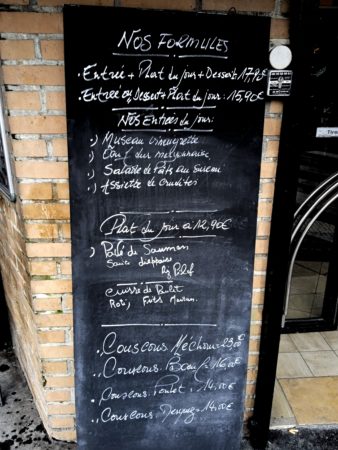 NOS FORMULES
. Entrée + Plat du jour + Dessert: 17,90€
. Entrée ou Dessert + Plat du jour: 15,90€
NOS Entrées du jour:
Museau vinaigrette
Oeuf dur mayonnaise
Salade de
Assiette de Crudités
Plat du jour à 12,90€
Pavé de Saumon
Sauce dieppoise
Riz Pilaf
cuisse de Poulet
Roti, Frites Maison.
. Couscous Méchoui = 23.00€
. Couscous
. Couscous Poulet : 14,00€
. Couscous : 14,00€